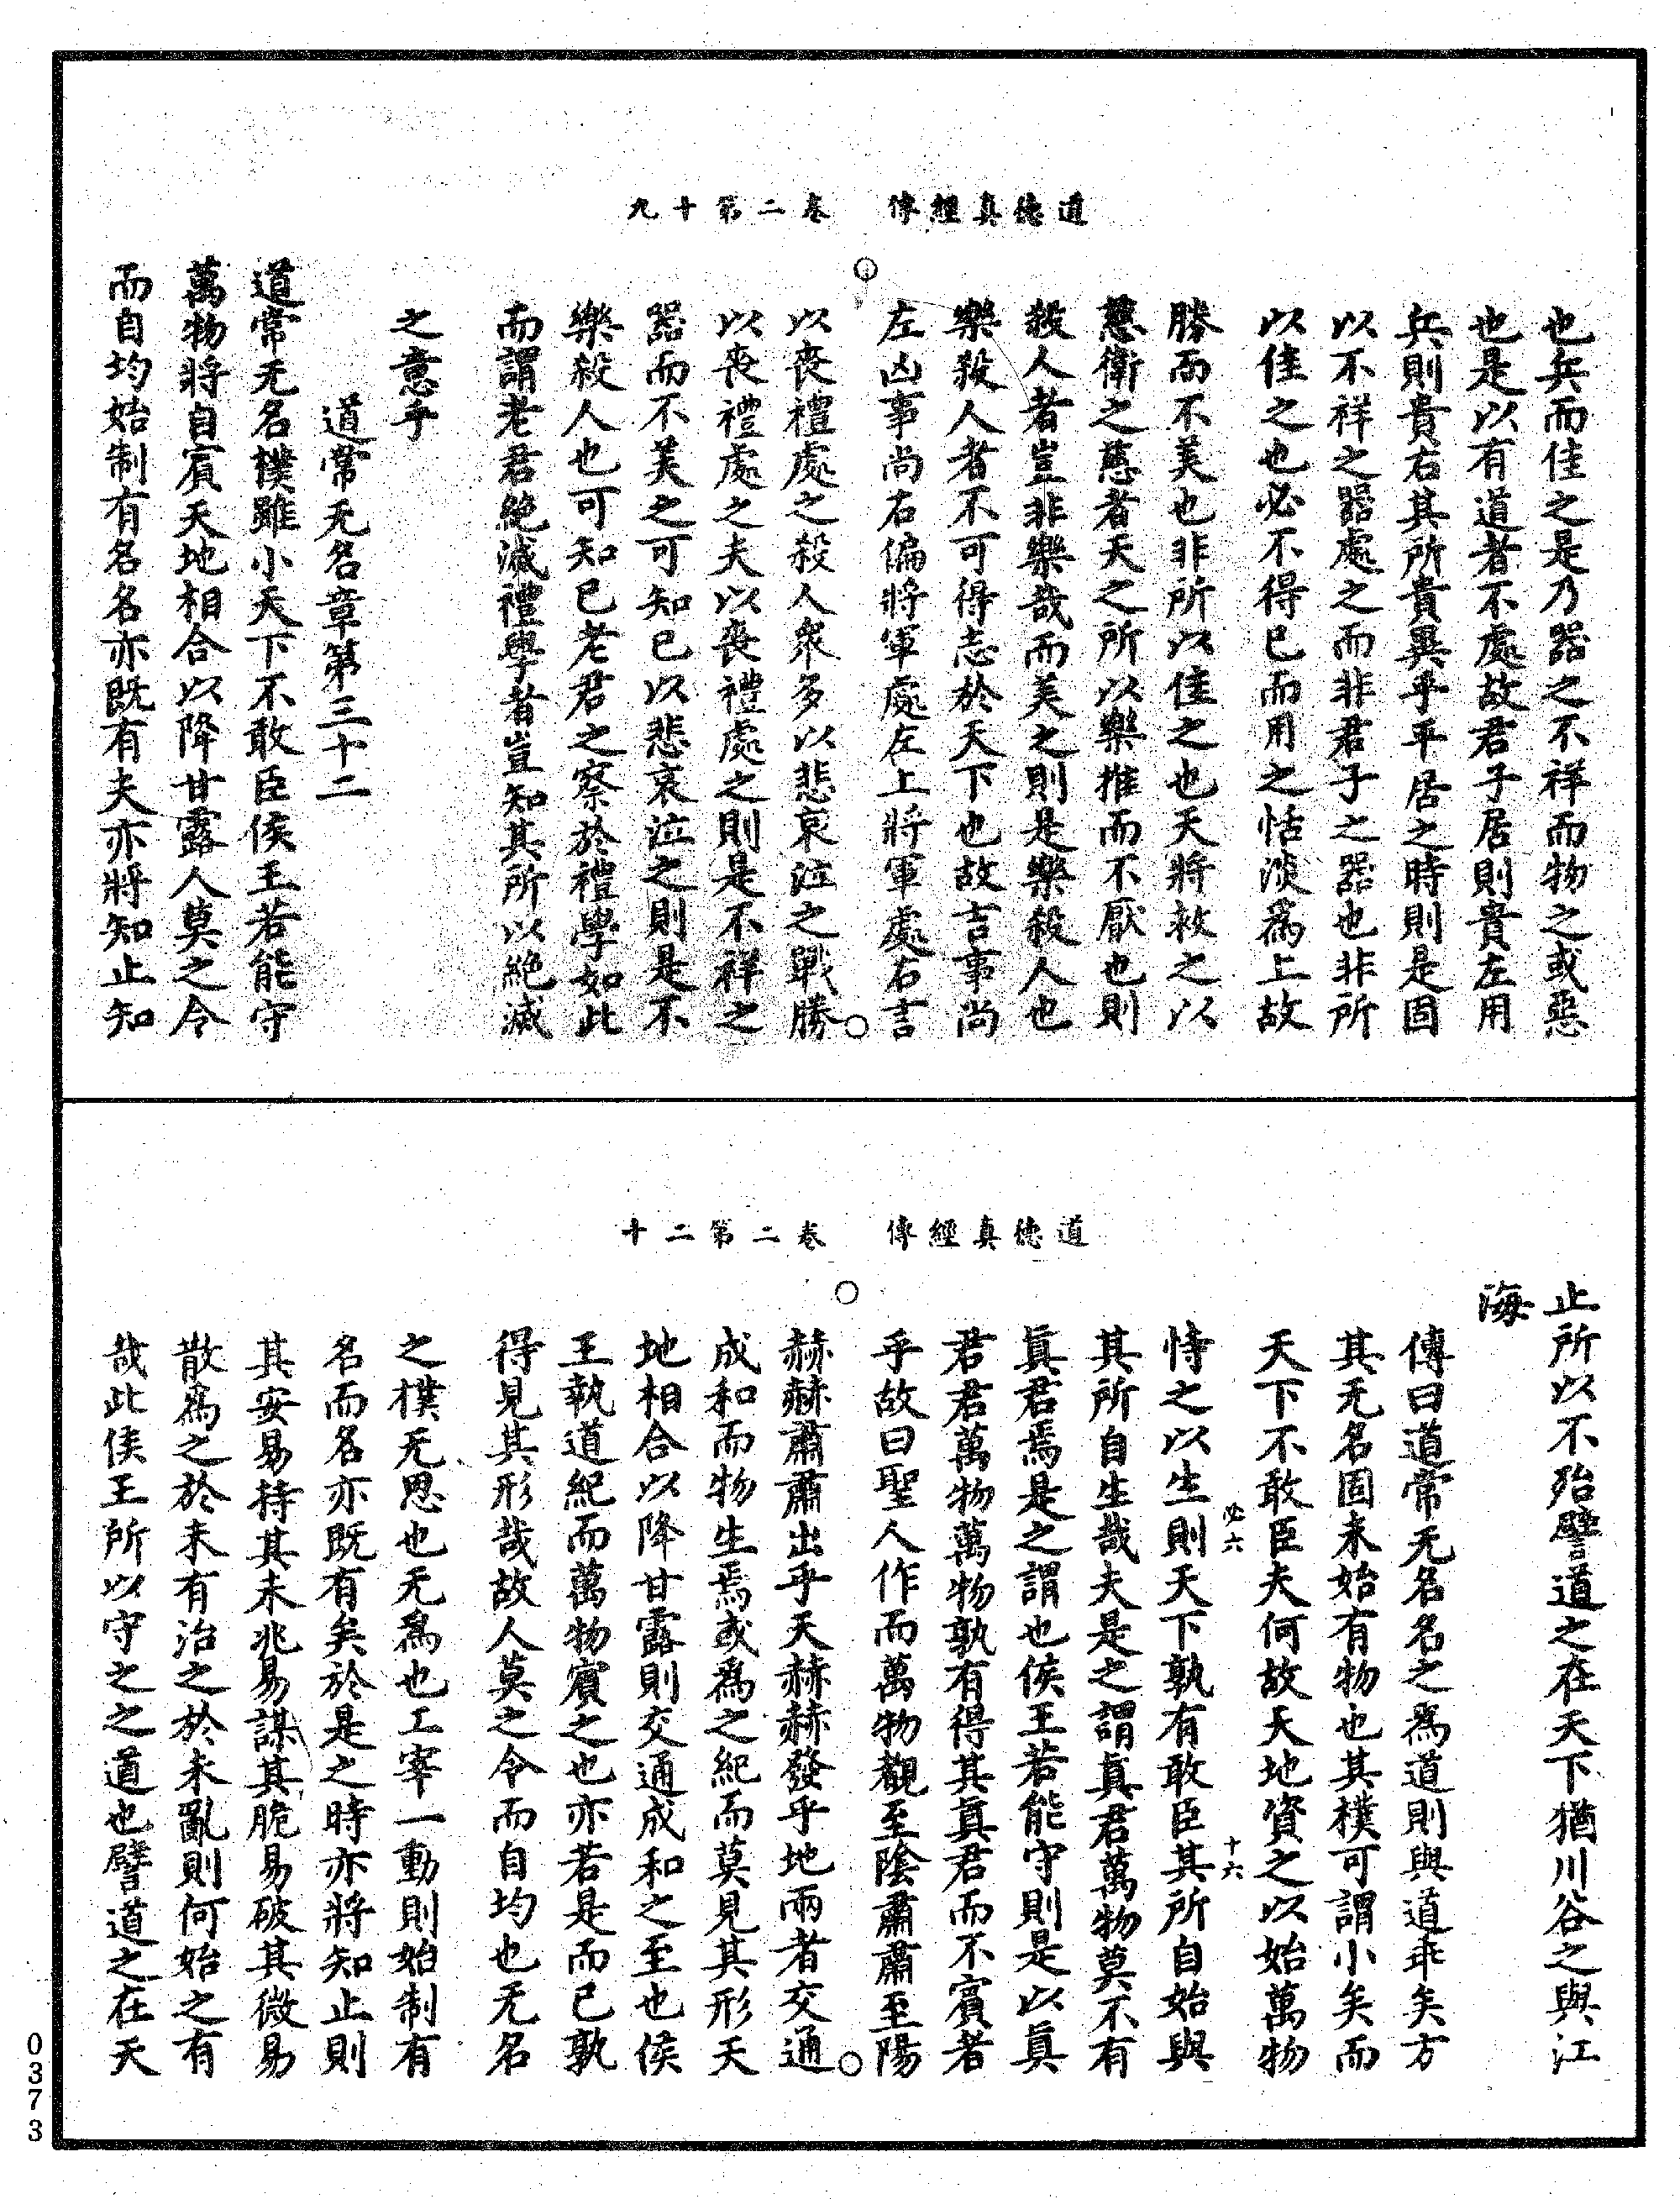 道德真經傳　卷二第十九
也兵而佳之是乃器之不祥而物之或惡
也是以有道者不處故君子居則貴左用
兵則貴右其所貴異乎平居之時則是固
以不祥之器處之而非君子之器也非所
以佳之也必不得已而用之恬淡爲上故
勝而不美也非所以佳之也天將救之以
慈衛之慈者天之所以樂推而不厭也則
殺人者豈非樂哉而美之則是樂殺人也
樂殺人者不可得志於天下也故吉事尚
左凶事尚右偏將軍處左上將軍處右言
以喪禮處之殺人衆多以悲哀泣之戰勝
以喪禮處之夫以喪禮處之則是不祥之
器而不美之可知已以悲哀泣之則是不
樂殺人也可知已老君之察於禮學如此
而謂老君絶滅禮學者豈知其所以絶滅
之意乎
道常无名章第三十二
道常无名樸雖小天下不敢臣侯王若能守
萬物將自賓天地相合以降甘露人莫之令
而自均始制有名名亦既有夫亦將知止知
道德真經傳　卷二第二十
止所以不殆譬道之在天下猶川谷之與江
海
傳曰道常无名名之爲道則與道乖矣方
其无名固未始有物也其樸可謂小矣而
天下不敢臣夫何故天地資之以始萬物
必六　十六
恃之以生則天下孰有敢臣其所自始與
其所自生哉夫是之謂眞君萬物莫不有
眞君焉是之謂也侯王若能守則是以眞
君君萬物萬物孰有得其眞君而不賓者
乎故曰聖人作而萬物覩至陰肅肅至陽
赫赫肅肅出乎天赫赫發乎地兩者交通
成和而物生焉或爲之紀而莫見其形天
地相合以降甘露則交通成和之至也侯
王執道紀而萬物賓之也亦若是而已孰
得見其形哉故人莫之令而自均也无名
之樸无思也无爲也工宰一動則始制有
名而名亦既有矣於是之時亦將知止則
其安易持其未兆易謀其脆易破其微易
散爲之於未有治之於未亂則何始之有
哉此侯王所以守之之道也譬道之在天
0373